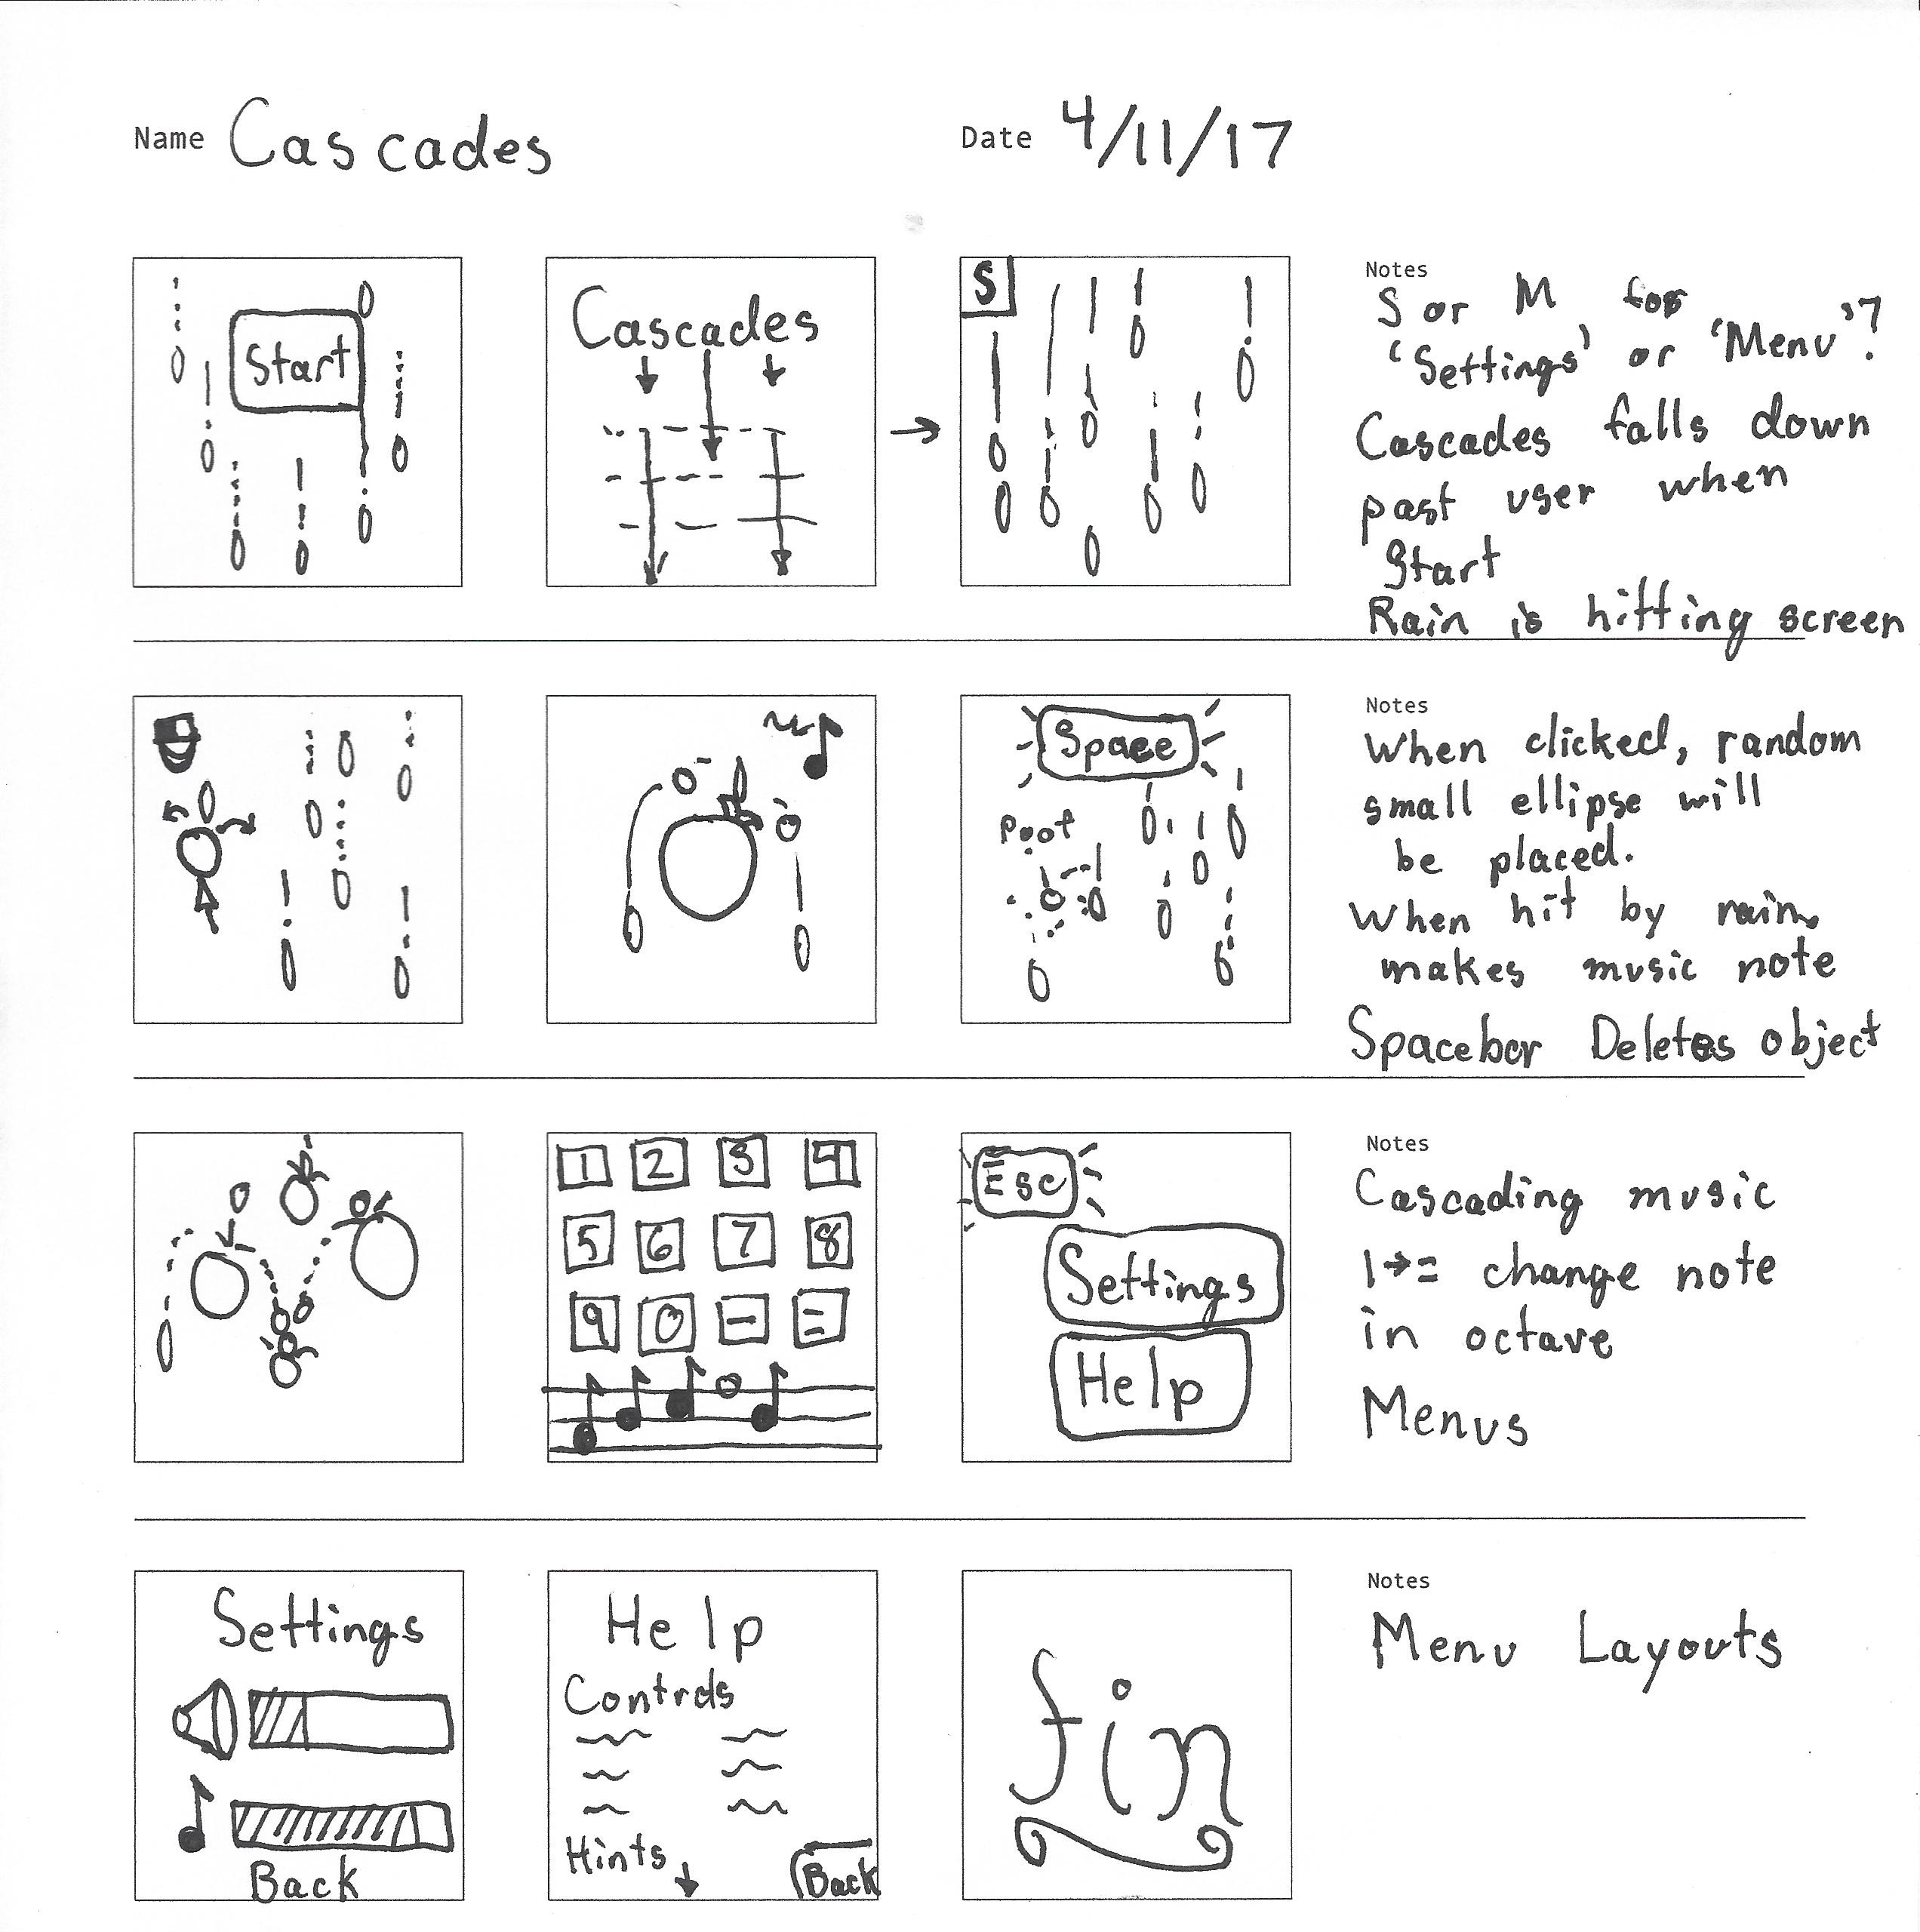 Name Cascades
Date 4/11/17
Start
Cascades
S
Notes
S or M for
'Settings' or 'Menu'?
Cascades falls down
past user when
Start
Rain is hitting screen
Space
Poof
Notes
When clicked, random
small ellipse will
be placed.
When hit by rain,
makes music note
Spacebar Deletes object
1 2 3 4
5 6 7 8
9 0 - =
Esc
Settings
Help
Notes
Cascading music
1→= change note
in octave
Menus
Settings
Back
Help
Controls
Hints
Back
fin
Notes
Menu Layouts